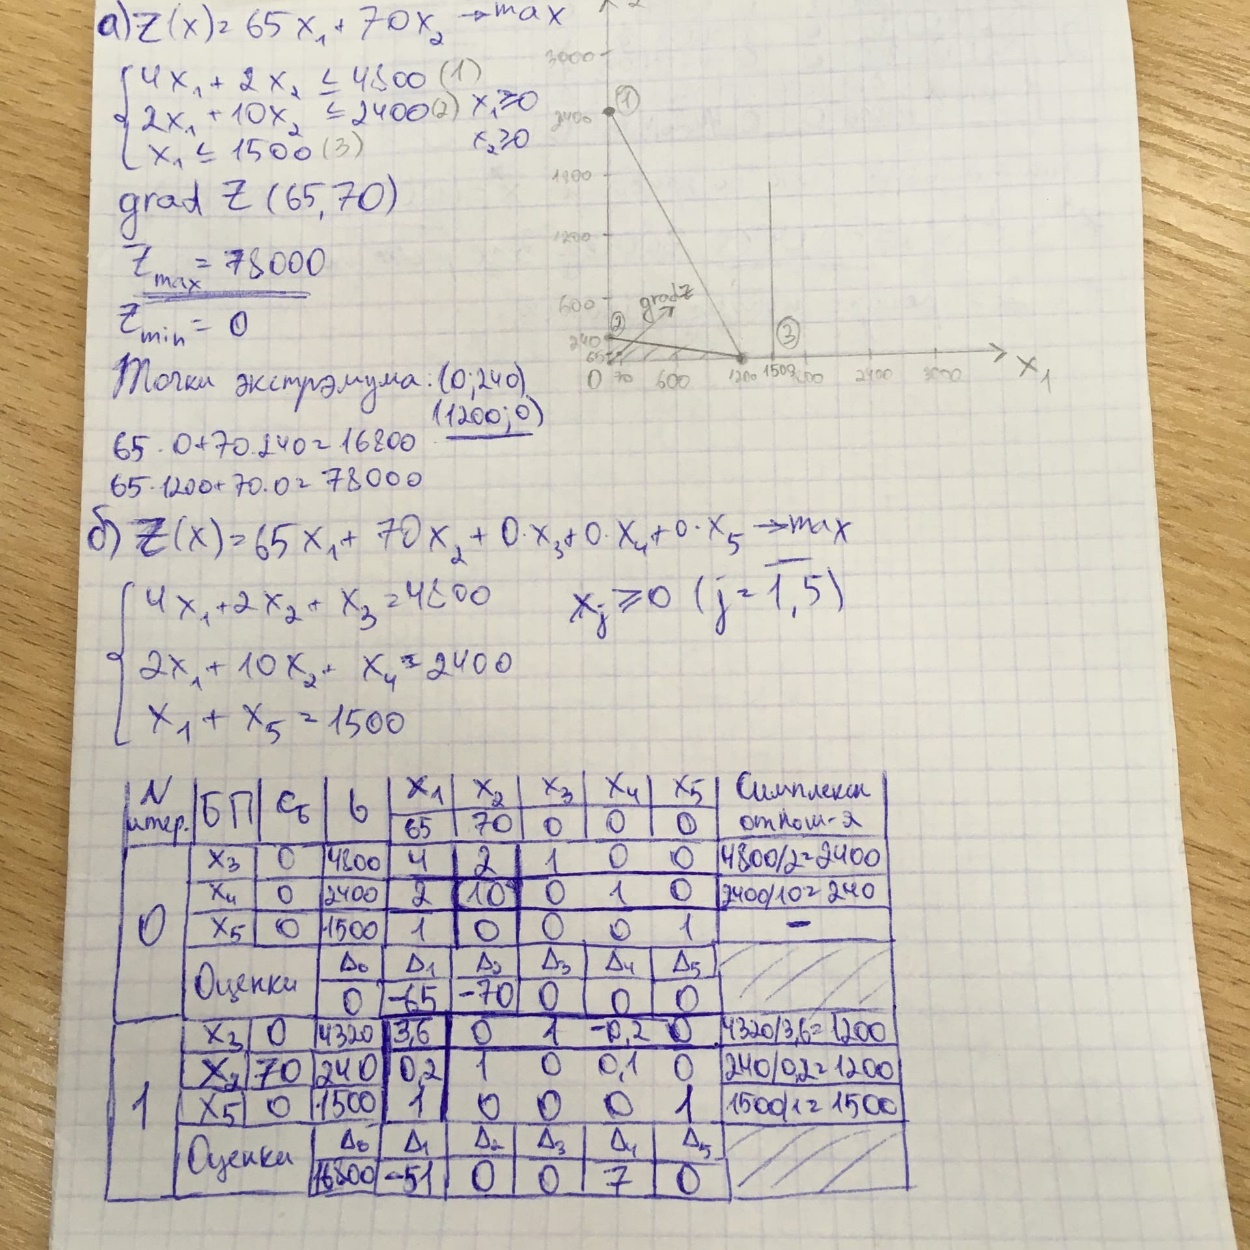 а) Z(x) = 65x₁ + 70x₂ → max
4x₁ + 2x₂ ≤ 4800 (1)
2x₁ + 10x₂ ≤ 2400 (2) x₁ ≥ 0
x₁ ≤ 1500 (3) x₂ ≥ 0
grad Z (65, 70)
Z max = 78000
Z min = 0
Точки экстрэмума: (0; 240)
(1200; 0)
65 · 0 + 70 · 240 = 16800
65 · 1200 + 70 · 0 = 78000
3000
2400 ①
1800
1200
600 grad Z
240 ②
65 ③
0 70 600 1200 1500 1800 2400 3000 x₁
б) Z(x) = 65x₁ + 70x₂ + 0·x₃ + 0·x₄ + 0·x₅ → max
4x₁ + 2x₂ + x₃ = 4800 xⱼ ≥ 0 (j = 1,5)
2x₁ + 10x₂ + x₄ = 2400
x₁ + x₅ = 1500
N итер. БП Cб b x₁ x₂ x₃ x₄ x₅ Симплексн отнош-я
65 70 0 0 0
0 x₃ 0 4800 4 2 1 0 0 4800/2=2400
x₄ 0 2400 2 10 0 1 0 2400/10=240
x₅ 0 1500 1 0 0 0 1 -
Оценки Δ₀ Δ₁ Δ₂ Δ₃ Δ₄ Δ₅
0 -65 -70 0 0 0
1 x₃ 0 4320 3,6 0 1 -0,2 0 4320/3,6=1200
x₂ 70 240 0,2 1 0 0,1 0 240/0,2=1200
x₅ 0 1500 1 0 0 0 1 1500/1=1500
Оценки Δ₀ Δ₁ Δ₂ Δ₃ Δ₄ Δ₅
16800 -51 0 0 7 0